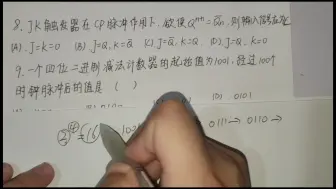 8. JK触发器在CP脉冲作用下,欲使Qⁿ⁺¹=Q̄ⁿ,则输入信号应为
(A). J=K=0 (B) J=Q, K=Q̄ (C). J=Q̄, K=Q (D). J=Q, K=0
9. 一个四位二进制减法计数器的起始值为1001,经过100个
时钟脉冲后的值是 ( )
0101
2⁴=16 0111→ 0110→